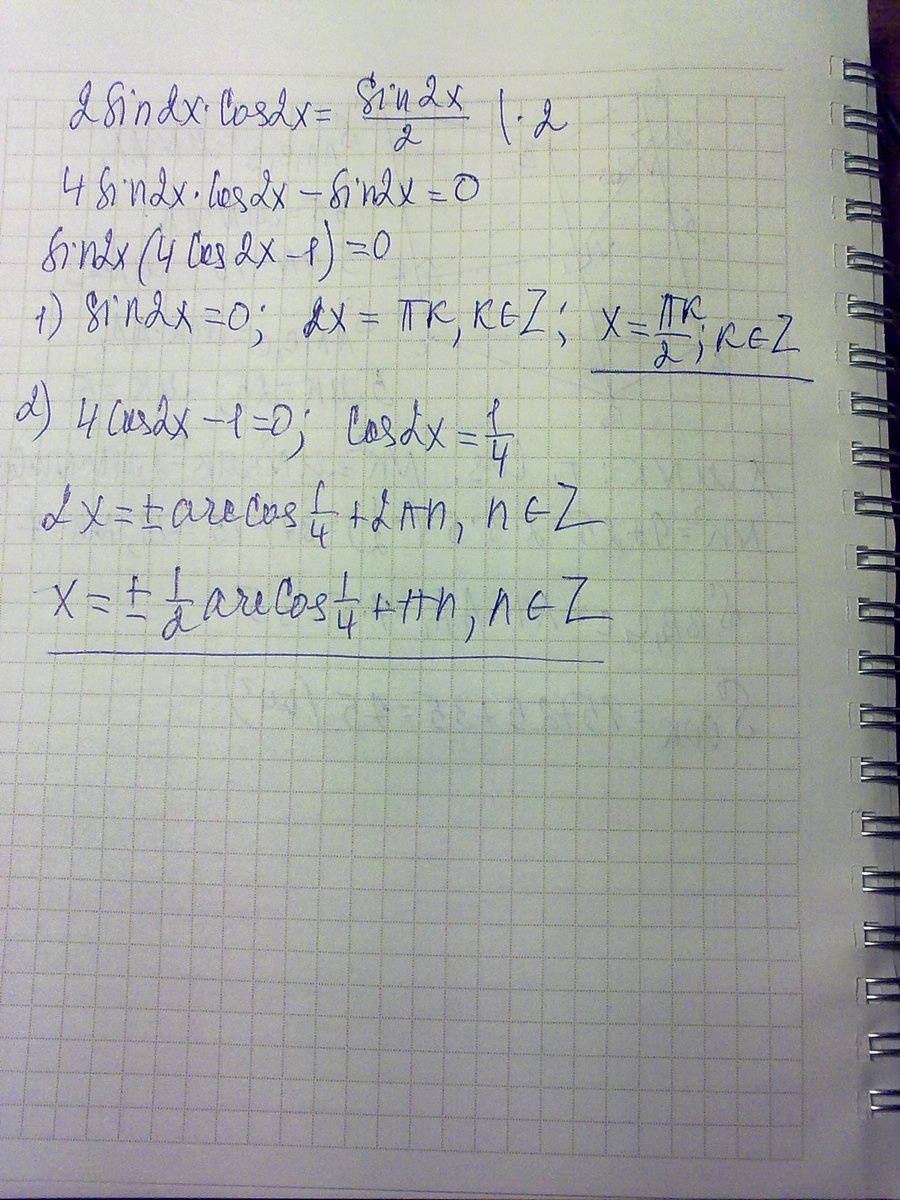 2sin2x·cos2x = sin2x/2 |·2
4sin2x·cos2x − sin2x = 0
sin2x(4cos2x−1) = 0
1) sin2x = 0; 2x = πk, k∈Z; x = πk/2; k∈Z
2) 4cos2x − 1 = 0; cos2x = 1/4
2x = ± arccos 1/4 + 2πn, n∈Z
x = ± 1/2 arccos 1/4 + πn, n∈Z